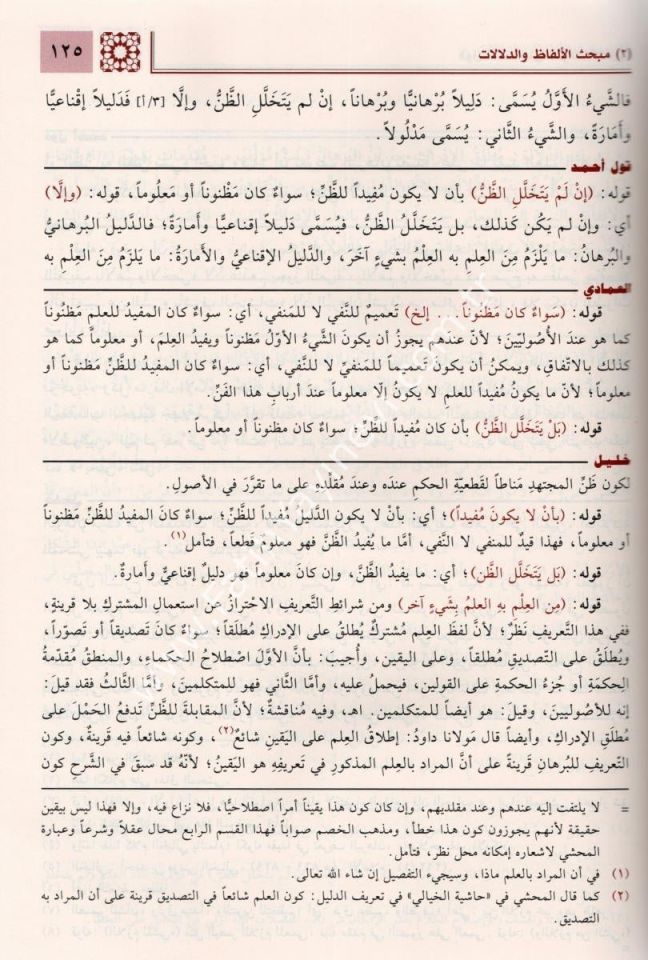 (٢) مبحث الألفاظ والدلالات
١٢٥
فالشَّيءُ الأوَّلُ يُسَمَّى: دَلِيلاً بُرْهانِيًّا وبُرْهاناً، إنْ لم يَتَخَلَّلِ الظَّنُّ، وإلَّا [٣/أ] فَدَلِيلاً إقناعيًّا
وأمَارَةً، والشَّيءُ الثَّاني: يُسَمَّى مَدْلُولاً.
قول أحمد
قوله: (إنْ لَمْ يَتَخَلَّلِ الظَّنُّ) بأن لا يكون مُفِيداً للظَّنِّ؛ سواءٌ كان مَظْنوناً أو مَعلُوماً، قوله: (وإلَّا)
أي: وإنْ لم يَكُن كَذلك، بل يَتَخَلَّلُ الظَّنُّ، فيُسَمَّى دَلِيلاً إقناعيًّا وأمارَةً؛ فالدَّليلُ البُرهانيُّ
والبُرهانُ: ما يَلْزَمُ مِنَ العِلمِ به العِلْمُ بشيءٍ آخَرَ، والدَّليلُ الإقناعيُّ والأمارَةُ: ما يَلزَمُ مِنَ العِلمِ به
العمادي
قوله: (سَواءٌ كان مَظنوناً... إلخ) تَعميمٌ للنَّفي لا للمَنفي، أي: سواءٌ كان المفيد للعلم مَظنوناً
كما هو عندَ الأُصُوليِّينَ؛ لأنَّ عندهم يجوزُ أن يكونَ الشَّيءُ الأوَّلُ مظنوناً ويفيدَ العِلمَ، أو معلوماً كما هو
كذلك بالاتّفاقِ، ويمكنُ أن يكونَ تَعميماً للمَنفيِّ لا للنَّفي، أي: سواءٌ كان المفيدُ للظَّنِّ مظنوناً أو
معلوماً؛ لأنَّ ما يكونُ مُفيداً للعلم لا يكونُ إلّا معلوماً عندَ أربابِ هذا الفَنِّ.
قوله: (بَلْ يَتَخَلَّل الظَّنُّ) بأن كان مُفيداً للظَّنِّ؛ سواءٌ كان مظنوناً أو معلوماً.
خليل
لكون ظَنِّ المجتهدِ مَناطاً لقَطعيَّةِ الحكمِ عندَه وعندَ مُقلِّدِه على ما تقرَّرَ في الأصولِ.
قوله: (بأنْ لا يكونَ مُفيداً)؛ أي: بأنْ لا يكون الدَّليل مُفيداً للظَّنِّ؛ سواءٌ كان المفيد للظَّنِّ مَظنوناً
أو معلوماً، فهذا قيدٌ للمنفي لا النَّفي، أمَّا ما يُفيدُ الظَّنَّ فهو معلومٌ قطعاً، فتأمل(١).
قوله: (بَل يَتَخَلَّل الظَّن)؛ أي: ما يفيدُ الظَّن، وإن كانَ معلوماً فهو دليلٌ إقناعي وأمارةٌ.
قوله: (مِن العِلْمِ بِه العِلمُ بِشَيءٍ آخر) ومن شرائطِ التَّعريف الاحترازُ عن استعمالِ المشتركِ بلا قرينة،
ففي هذا التَّعريفِ نَظَرٌ؛ لأنَّ لفظَ العِلم مُشتركٌ يُطلقُ على الإدراكِ مُطلَقاً؛ سواءٌ كانَ تَصديقاً أو تصوّراً،
ويُطلَقُ على التَّصديقِ مطلقاً، وعلى اليقين، وأُجيبَ: بأنَّ الأوَّلَ اصطلاحُ الحكماءِ، والمنطق مُقدّمةُ
الحِكمَةِ أو جُزءُ الحكمةِ على القولين، فيحملُ عليه، وأمَّا الثَّاني فهو للمتكلمين، وأمَّا الثَّالث فقد قيلَ:
إنه للأصوليين، وقيلَ: هو أيضاً للمتكلمين. اهـ، وفيه مُناقشةٌ؛ لأنَّ المقابلةَ للظَّنِّ تَدفعُ الحَمْلَ على
مُطلَقِ الإدراكِ، وأيضاً قال مَولانا داودُ: إطلاقُ العِلم على اليَقينِ شائعٌ(٢)، وكونه شائعاً فيه قرينةٌ، وكون
التَّعريفِ للبُرهانِ قَرينةٌ على أنَّ المرادَ بالعِلم المذكورِ في تَعريفِهِ هو اليقينُ؛ لأنَّهُ قد سبَقَ في الشَّرحِ كون
= لا يلتفت إليه عندهم وعند مقلديهم، وإن كان كون هذا يقيناً أمراً اصطلاحيًّا، فلا نزاع فيه، وإلا فهذا ليس بيقين
حقيقة لأنهم يجوزون كون هذا خطأ، ومذهب الخصم صواباً فهذا القسم الرابع محال عقلاً وشرعاً وعبارة
المحشي لاشعاره إمكانه محل نظر، فتأمل.
(١) في أن المراد بالعلم ماذا، وسيجيء التفصيل إن شاء الله تعالى.
(٢) كما قال المحشي في «حاشية الخيالي» في تعريف الدليل: كون العلم شائعاً في التصديق قرينة على أن المراد به
التصديق.